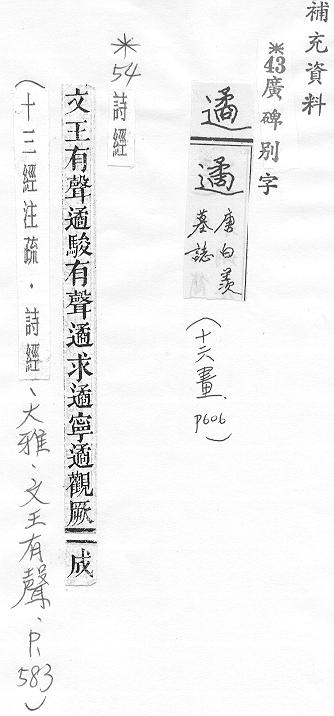 補充資料
※43廣碑別字
遹
遹
唐白羨
墓誌
(十六畫、P606)
※54詩經
文王有聲遹駿有聲遹求遹寧遹觀厥成
(十三經注疏.詩經、大雅、文王有聲、P.583)